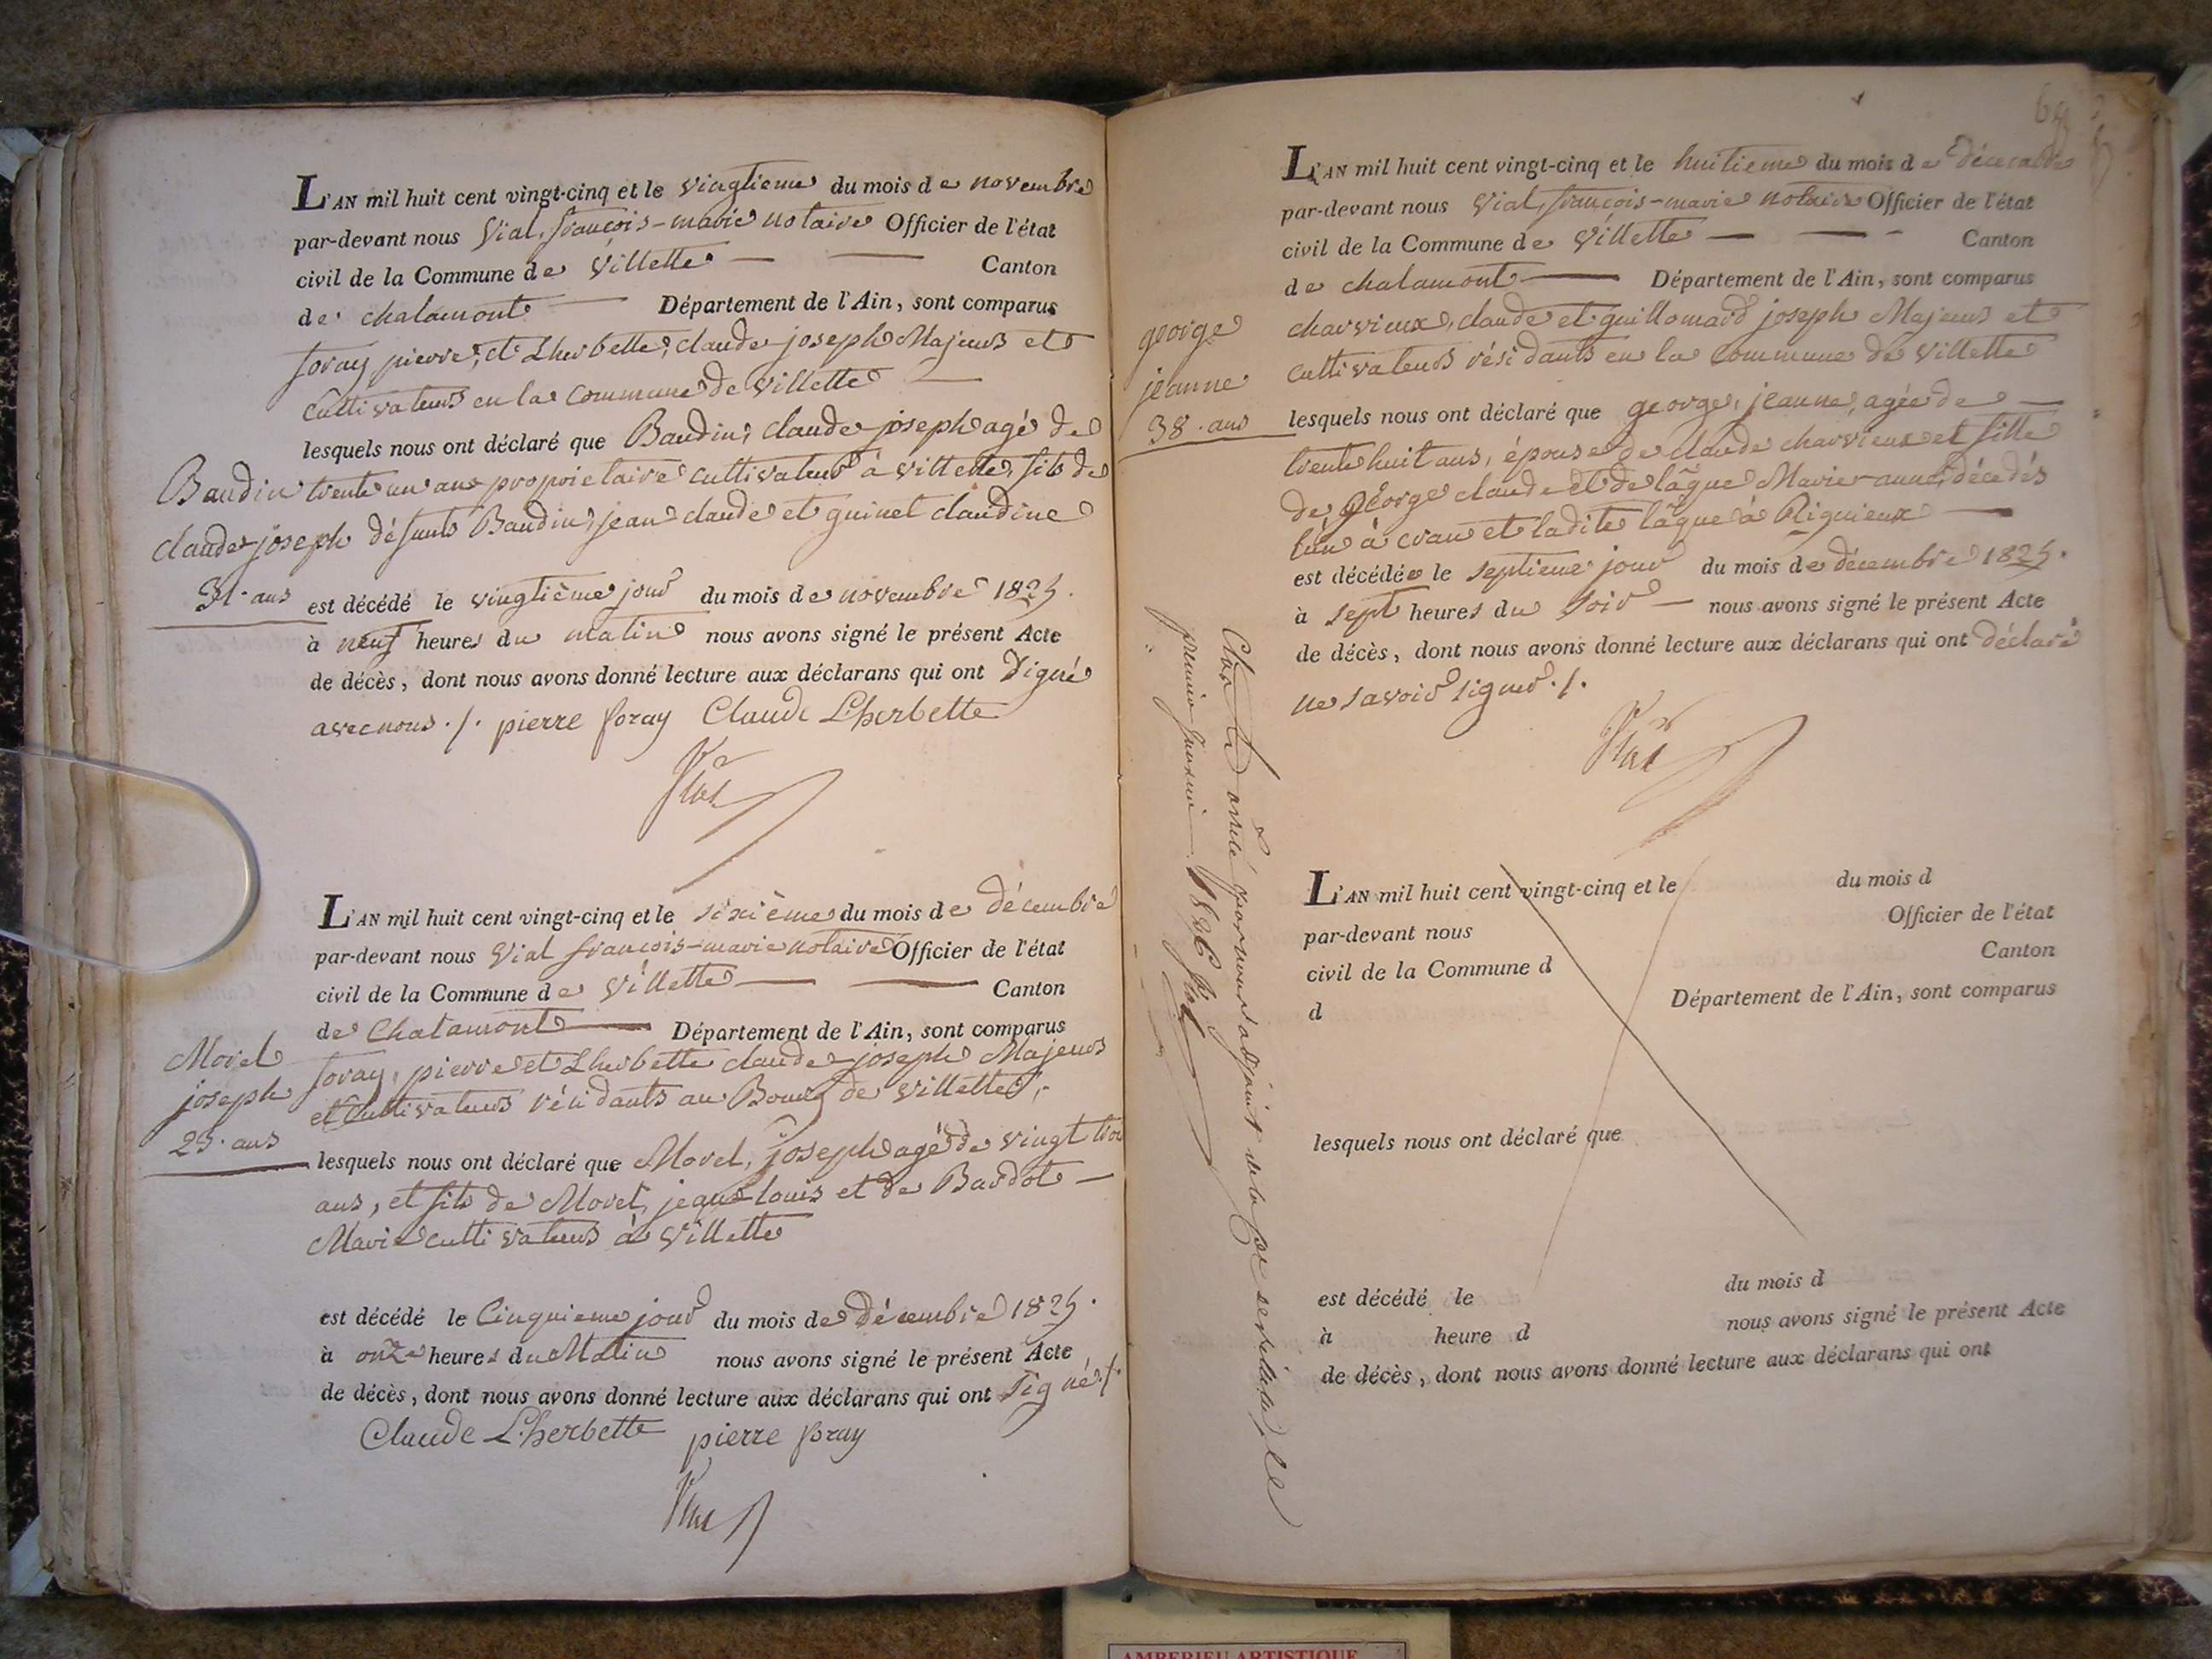 L'AN mil huit cent vingt-cinq et le vingtieme du mois de novembre
par-devant nous Vial, françois-marie notaire Officier de l'état
civil de la Commune de Villette — — Canton
de chalamont — Département de l'Ain, sont comparus
foray pierre, et Lherbette, claude joseph Majeurs et
Cultivateurs en la Commune de Villette —
lesquels nous ont déclaré que Baudin, claude joseph agé de
Baudin
trente un ans propriétaire cultivateur à villette, fils de
claude joseph
défunts Baudin, jean claude et guinet claudine
31. ans
est décédé le vingtième jour du mois de novembre 1825.
à neuf heures du matin nous avons signé le présent Acte
de décès, dont nous avons donné lecture aux déclarans qui ont signé
avec nous ./. pierre foray Claude Lherbette
Vial
L'AN mil huit cent vingt-cinq et le sixième du mois de décembre
par-devant nous Vial françois-marie notaire Officier de l'état
civil de la Commune de Villette — — Canton
de Chalamont — Département de l'Ain, sont comparus
Morel
joseph
25. ans
foray, pierre et Lherbette claude joseph Majeurs
et Cultivateurs résidants au Bourg de Villette,
lesquels nous ont déclaré que Morel, joseph agé de vingt
ans, et fils de Morel, jean louis et de Bardot —
Marie cultivateurs à Villette
est décédé le Cinquieme jour du mois de Décembre 1825.
à onze heures du Matin nous avons signé le présent Acte
de décès, dont nous avons donné lecture aux déclarans qui ont signé ./.
Claude Lherbette pierre foray
Vial
69
L'AN mil huit cent vingt-cinq et le huitieme du mois de décembre
par-devant nous Vial, françois-marie notaire Officier de l'état
civil de la Commune de Villette — — Canton
de chalamont — Département de l'Ain, sont comparus
george
jeanne
38. ans
charvieux, claude et guillomard joseph Majeurs et
cultivateurs résidants en la commune de Villette
lesquels nous ont déclaré que george, jeanne, agée de —
trente huit ans, épouse de claude charvieux et fille
de george claude et de lâgue Marie-anne, décédés
l'un à cran et ladite lâgue à Rignieux —
est décédée le septieme jour du mois de décembre 1825.
à sept heures du soir — nous avons signé le présent Acte
de décès, dont nous avons donné lecture aux déclarans qui ont déclaré
ne savoir signer ./.
Vial
Clos et arrêté par nous adjoint de la ce
premier janvier 1826 Vial
L'AN mil huit cent vingt-cinq et le du mois d
par-devant nous Officier de l'état
civil de la Commune d Canton
d Département de l'Ain, sont comparus
lesquels nous ont déclaré que
est décédé le du mois d
à heure d nous avons signé le présent Acte
de décès, dont nous avons donné lecture aux déclarans qui ont
AMBERIEU ARTISTIQUE